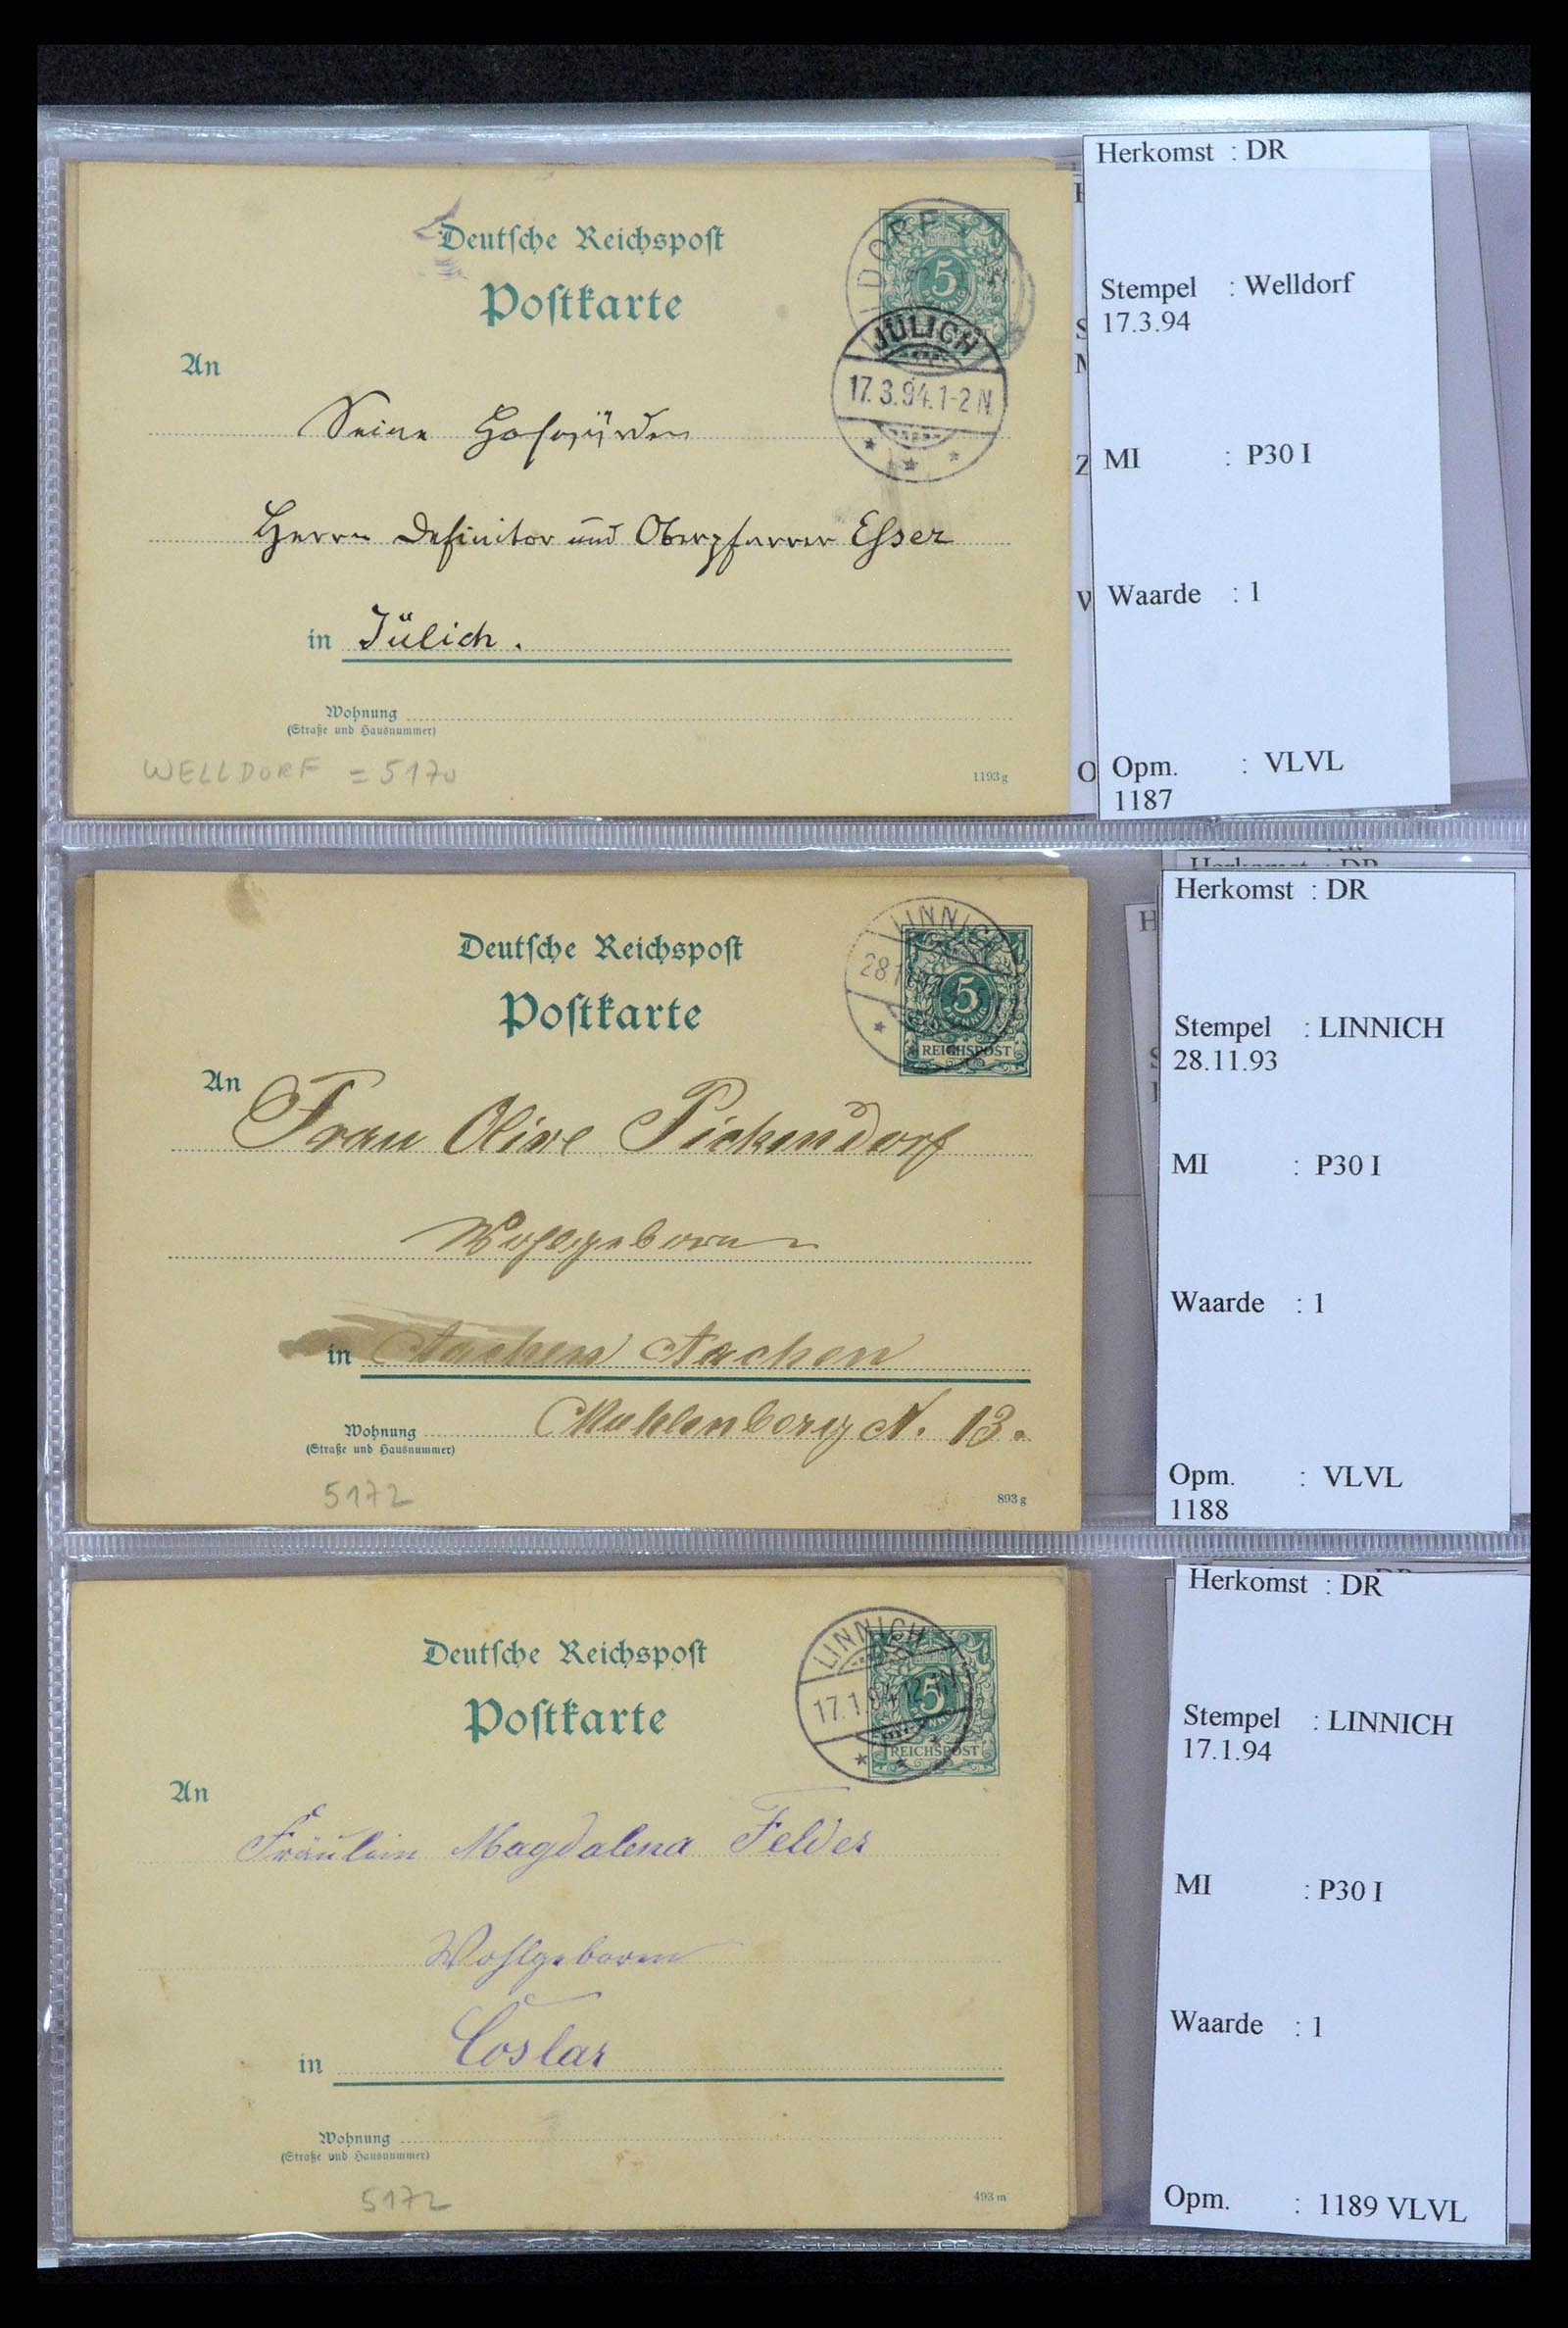 Deutsche Reichspost
Postkarte
DORF
5
PFENNIG
JÜLICH
17.3.94.1-2N.
An
Seine Hochwürden
Herrn Definitor und Oberpfarrer Esser
in Jülich.
Wohnung
(Straße und Hausnummer)
WELLDORF = 5170
1193 g
Herkomst : DR
Stempel : Welldorf
17.3.94
MI : P30 I
Waarde : 1
Opm. : VLVL
1187
Deutsche Reichspost
Postkarte
LINNICH
28.11.93
5
PFENNIG
REICHSPOST
An
Frau Olive Pickendorf
Wohlgeboren
in Aachen Aachen
Muhlenberg N. 13.
Wohnung
(Straße und Hausnummer)
5172
893 g
Herkomst : DR
Herkomst : DR
Stempel : LINNICH
28.11.93
MI : P30 I
Waarde : 1
Opm. : VLVL
1188
Deutsche Reichspost
Postkarte
LINNICH
17.1.94.12-1N
5
REICHSPOST
An
Fräulein Magdalena Felder
Wohlgeboren
in Coslar
Wohnung
(Straße und Hausnummer)
5172
493 m
Herkomst : DR
Stempel : LINNICH
17.1.94
MI : P30 I
Waarde : 1
Opm. : 1189 VLVL